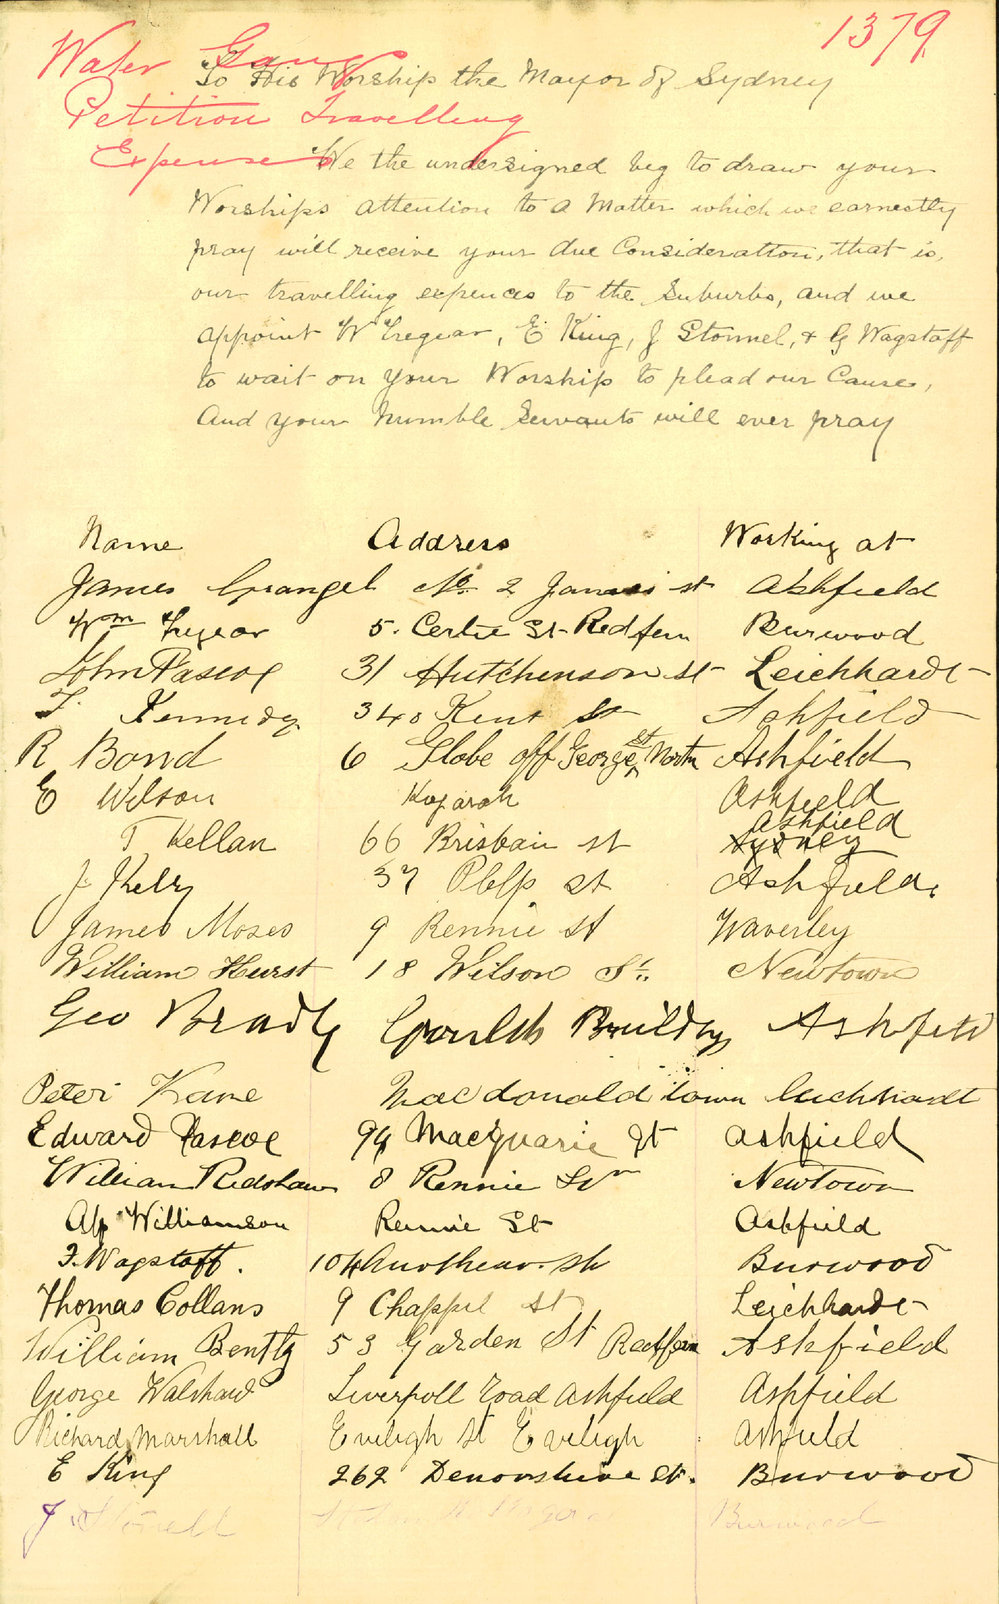 1379
Water Gang
Petition Travelling
Expenses
To His Worship the Mayor of Sydney
We the undersigned beg to draw your
Worships attention to a Matter which we earnestly
pray will receive your due Consideration, that is,
our travelling expences to the Suburbs, and we
appoint W Tregear, E King, J Stonnel, & G Wagstaff
to wait on your Worship to plead our Cause,
And your humble Servants will ever pray
Name Address Working at
James Grangel No 2 James st Ashfield
Wm Tregear 5. St Redfern Burwood
John Pascoe 31 Hutchenson st Leichhardt
T. Kennedy 340 Kent St Ashfield
R Bond 6 Globe off George st North Ashfield
E Wilson Kogarah Ashfield
T Kellan 66 Brisbain st Ashfield Sydney
J Kelly 37 st Ashfield
James Moses 9 Rennie st Waverley
William Hurst 18 Wilson St. Newtown
Geo Brady Ashfield
Peter Kane Macdonald town Leichhardt
Edward Pascoe 94 Macquarie St Ashfield
William Redshaw 8 Rennie Newtown
Williamson Rennie St Ashfield
Wagstaff. 104 st Burwood
Thomas Collans 9 Chappel St Leichhardt
William Bently 53 Garden St Redfern Ashfield
George Walshaw Liverpoll road Ashfield Ashfield
Richard Marshall Eveligh st Eveligh Ashfield
E King 262 Denonshire St. Burwood
J Burwood